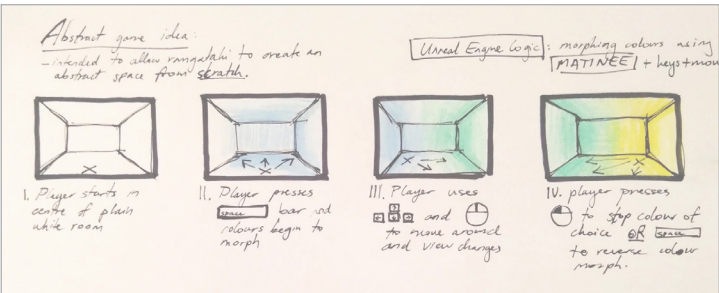 Abstract game idea:
- intended to allow rangatahi to create an
abstract space from scratch.
Unreal Engine Logic: morphing colours using
MATINEE + keys + mou
I. Player starts in
centre of plain
white room
II. Player presses
space bar and
colours begin to
morph
III. Player uses
and
to move around
and view changes
IV. player presses
to stop colour of
choice OR space
to reverse colour
morph.